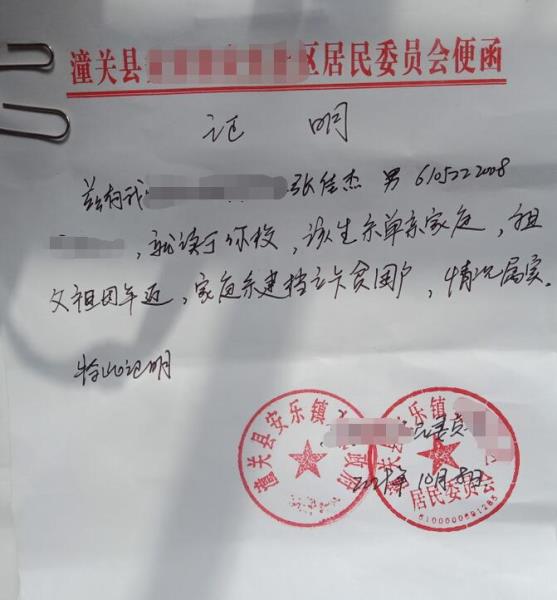 潼关县 区居民委员会便函
证 明
兹有我 张佳杰 男 6105222008
,就读于你校,该生系单亲家庭,祖
父祖母年迈,家庭系建档立卡贫困户,情况属实。
特此证明
潼关县安乐镇 政府
居民委员会
6100000601285
2021年10月8日